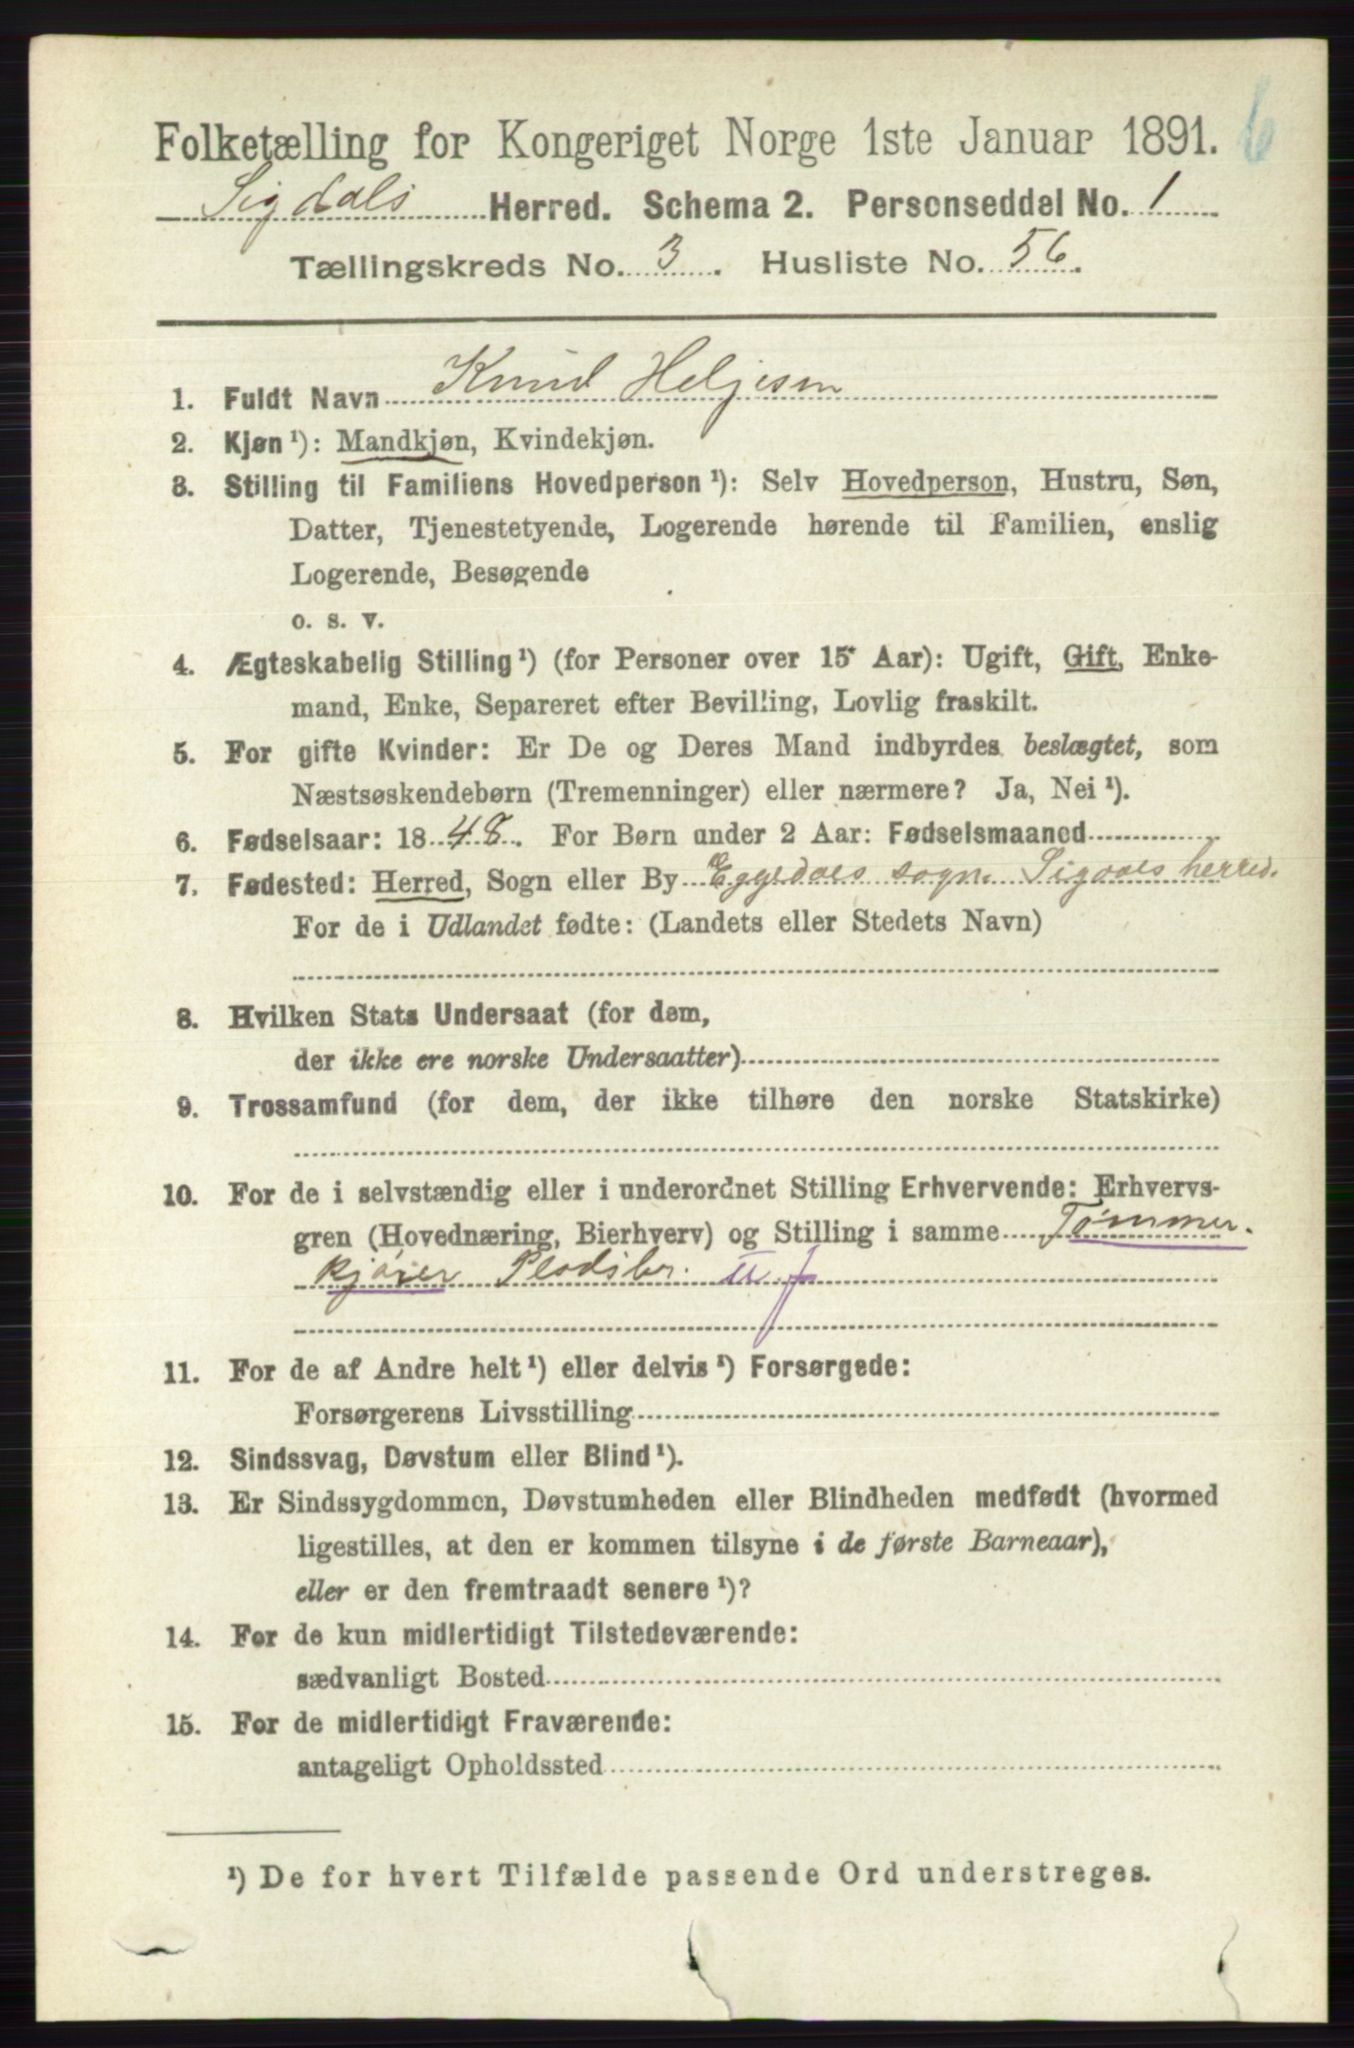 6
Folketælling for Kongeriget Norge 1ste Januar 1891.
Sigdals Herred. Schema 2. Personseddel No. 1
Tællingskreds No. 3. Husliste No. 56.
1. Fuldt Navn Knud Helgesen
2. Kjøn ¹): Mandkjøn, Kvindekjøn.
3. Stilling til Familiens Hovedperson ¹): Selv Hovedperson, Hustru, Søn,
Datter, Tjenestetyende, Logerende hørende til Familien, enslig
Logerende, Besøgende
o. s. v.
4. Ægteskabelig Stilling ¹) (for Personer over 15 Aar): Ugift, Gift, Enke-
mand, Enke, Separeret efter Bevilling, Lovlig fraskilt.
5. For gifte Kvinder: Er De og Deres Mand indbyrdes beslægtet, som
Næstsøskendebørn (Tremenninger) eller nærmere? Ja, Nei ¹).
6. Fødselsaar: 1848. For Børn under 2 Aar: Fødselsmaaned
7. Fødested: Herred, Sogn eller By Eggedals sogn. Sigdals herred.
For de i Udlandet fødte: (Landets eller Stedets Navn)
8. Hvilken Stats Undersaat (for dem,
der ikke ere norske Undersaatter)
9. Trossamfund (for dem, der ikke tilhøre den norske Statskirke)
10. For de i selvstændig eller i underordnet Stilling Erhvervende: Erhvervs-
gren (Hovednæring, Bierhverv) og Stilling i samme Tømmer-
kjører Pladsbr.
11. For de af Andre helt ¹) eller delvis ¹) Forsørgede:
Forsørgerens Livsstilling
12. Sindssvag, Døvstum eller Blind ¹).
13. Er Sindssygdommen, Døvstumheden eller Blindheden medfødt (hvormed
ligestilles, at den er kommen tilsyne i de første Barneaar),
eller er den fremtraadt senere ¹)?
14. For de kun midlertidigt Tilstedeværende:
sædvanligt Bosted
15. For de midlertidigt Fraværende:
antageligt Opholdssted
¹) De for hvert Tilfælde passende Ord understreges.